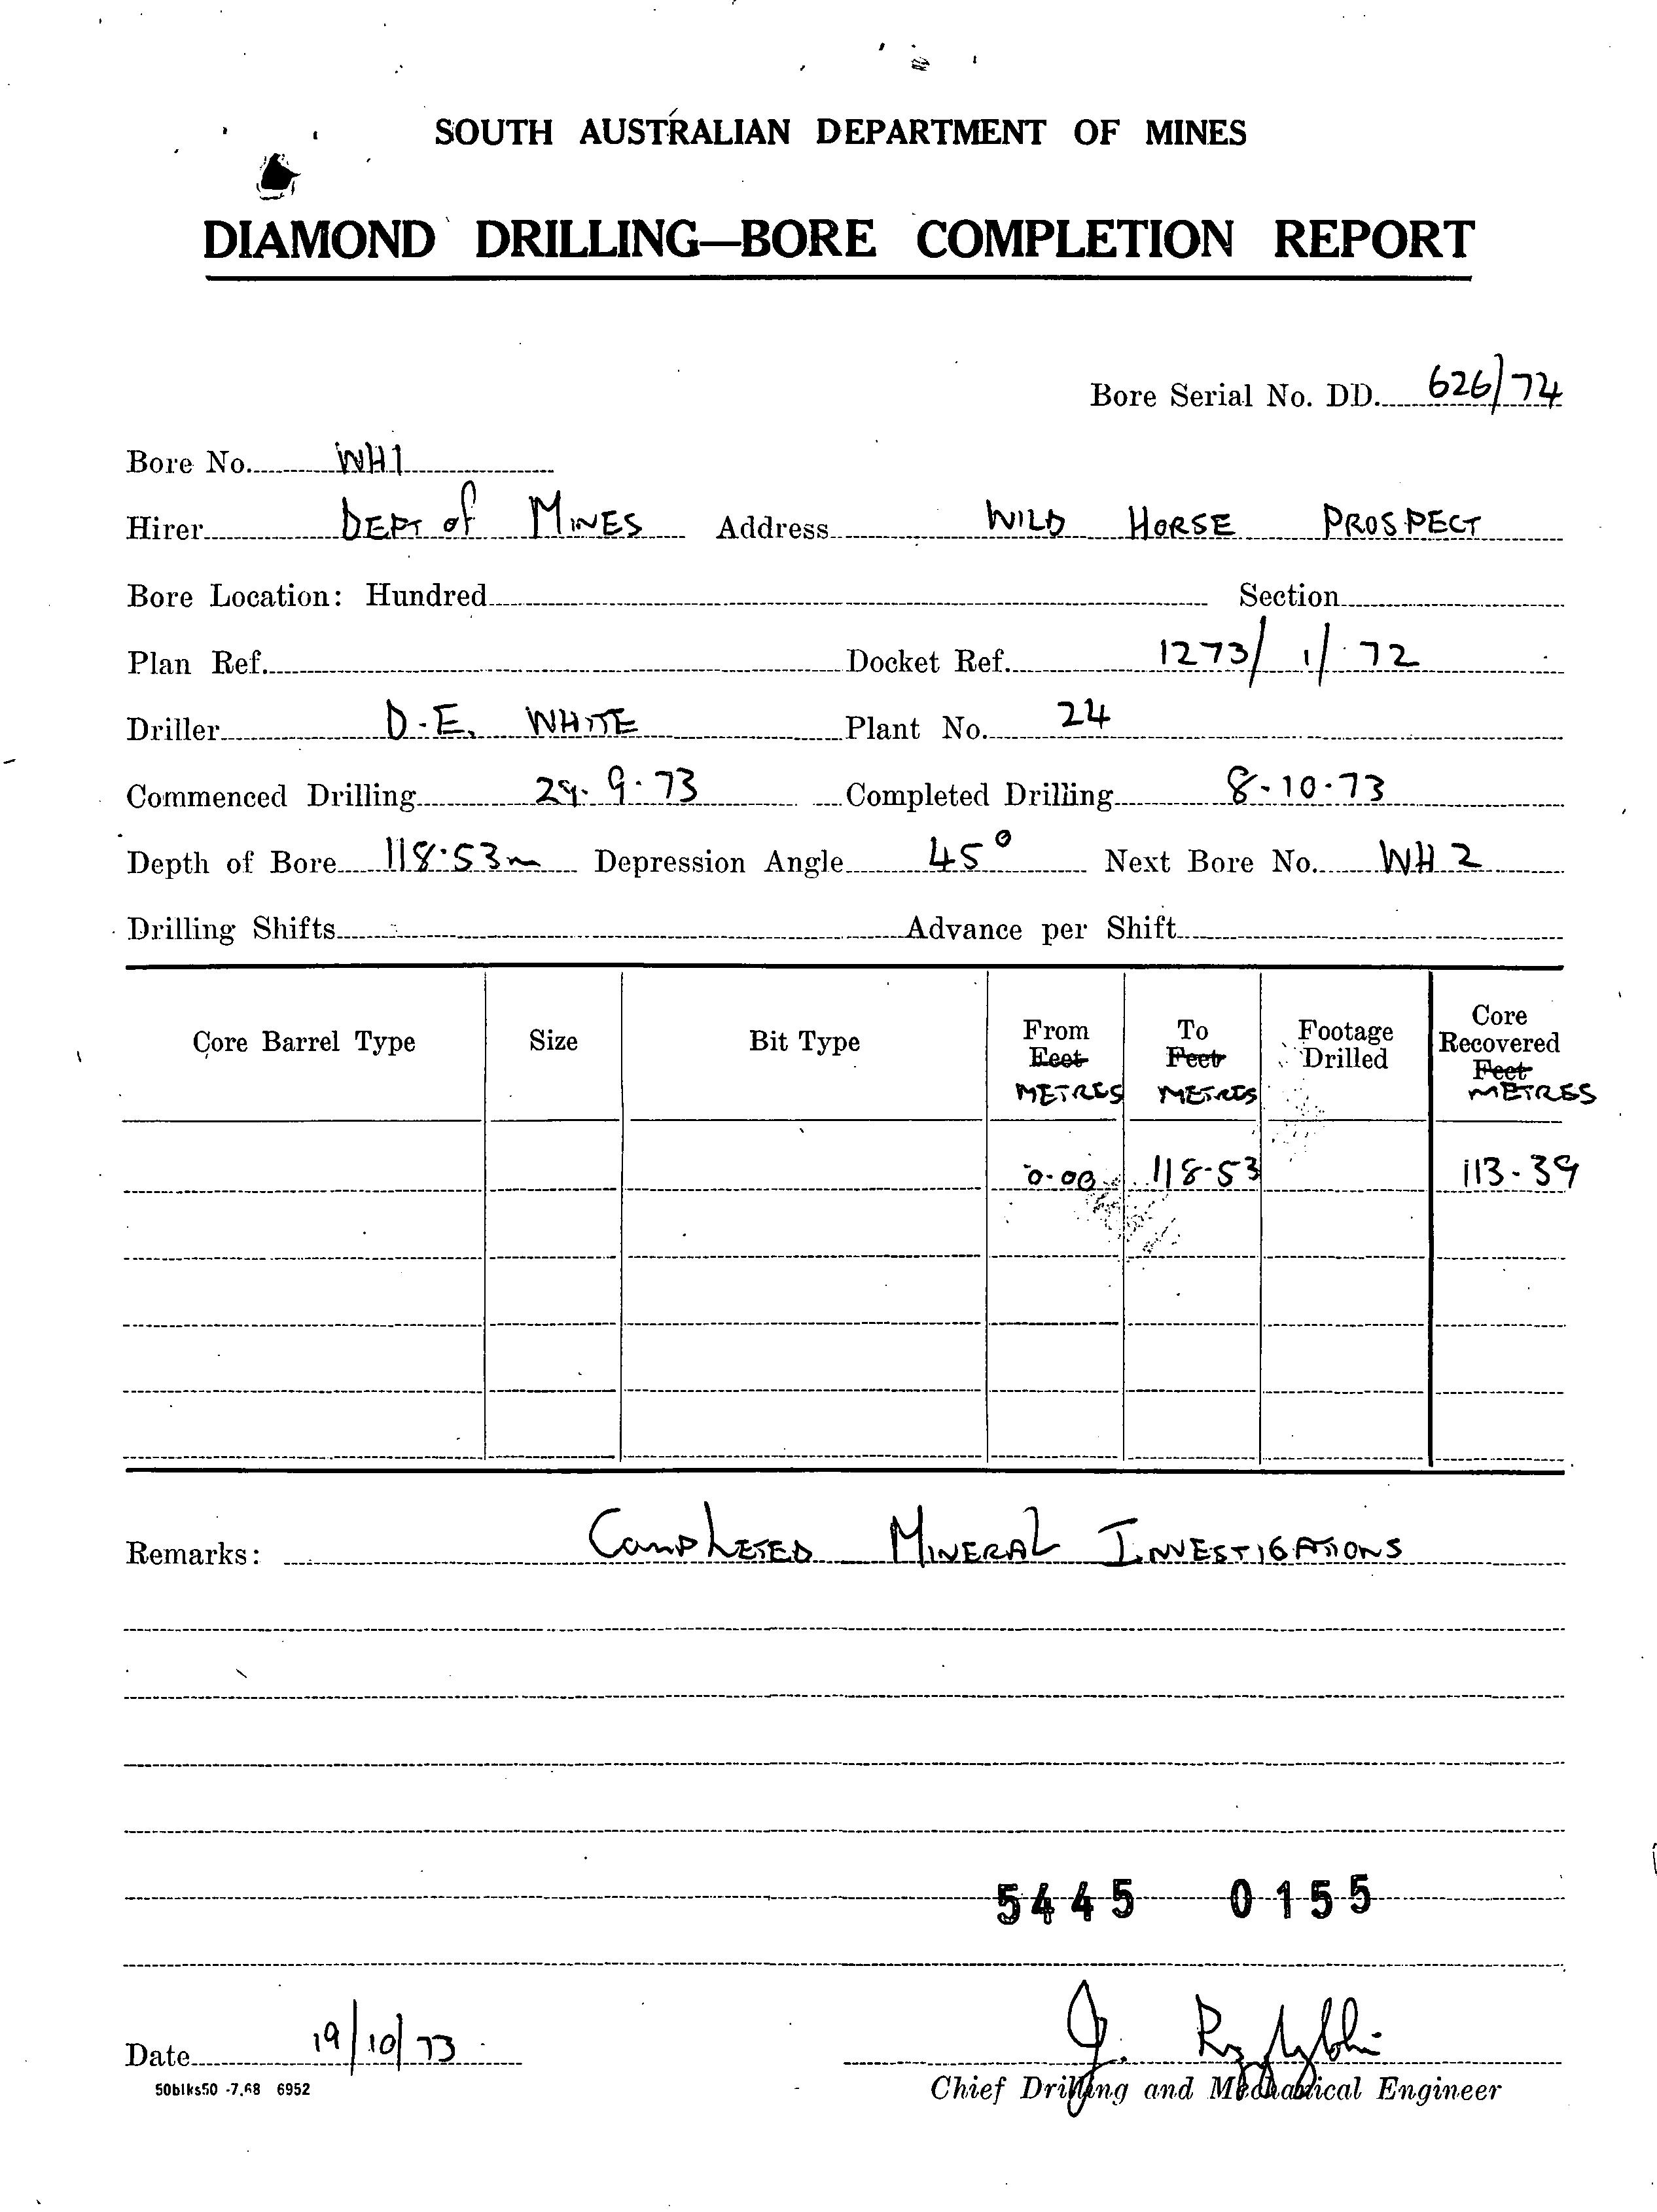 SOUTH AUSTRALIAN DEPARTMENT OF MINES
DIAMOND DRILLING—BORE COMPLETION REPORT
Bore Serial No. DD. 626/74
Bore No. WH1
Hirer DEPT of MINES Address WILD HORSE PROSPECT
Bore Location: Hundred Section
Plan Ref. Docket Ref. 1273/1/72
Driller D.E. WHITE Plant No. 24
Commenced Drilling 29.9.73 Completed Drilling 8-10-73
Depth of Bore 118.53m Depression Angle 45° Next Bore No. WH2
Drilling Shifts Advance per Shift
Core Barrel Type Size Bit Type From To Footage Core
Feet Feet Drilled Recovered
Feet
METRES METRES METRES
0.00 118-53 113-39
Remarks: COMPLETED MINERAL INVESTIGATIONS
5445 0155
Date 19/10/73 J.
50blks50 -7.68 6952 Chief Drilling and Mechanical Engineer